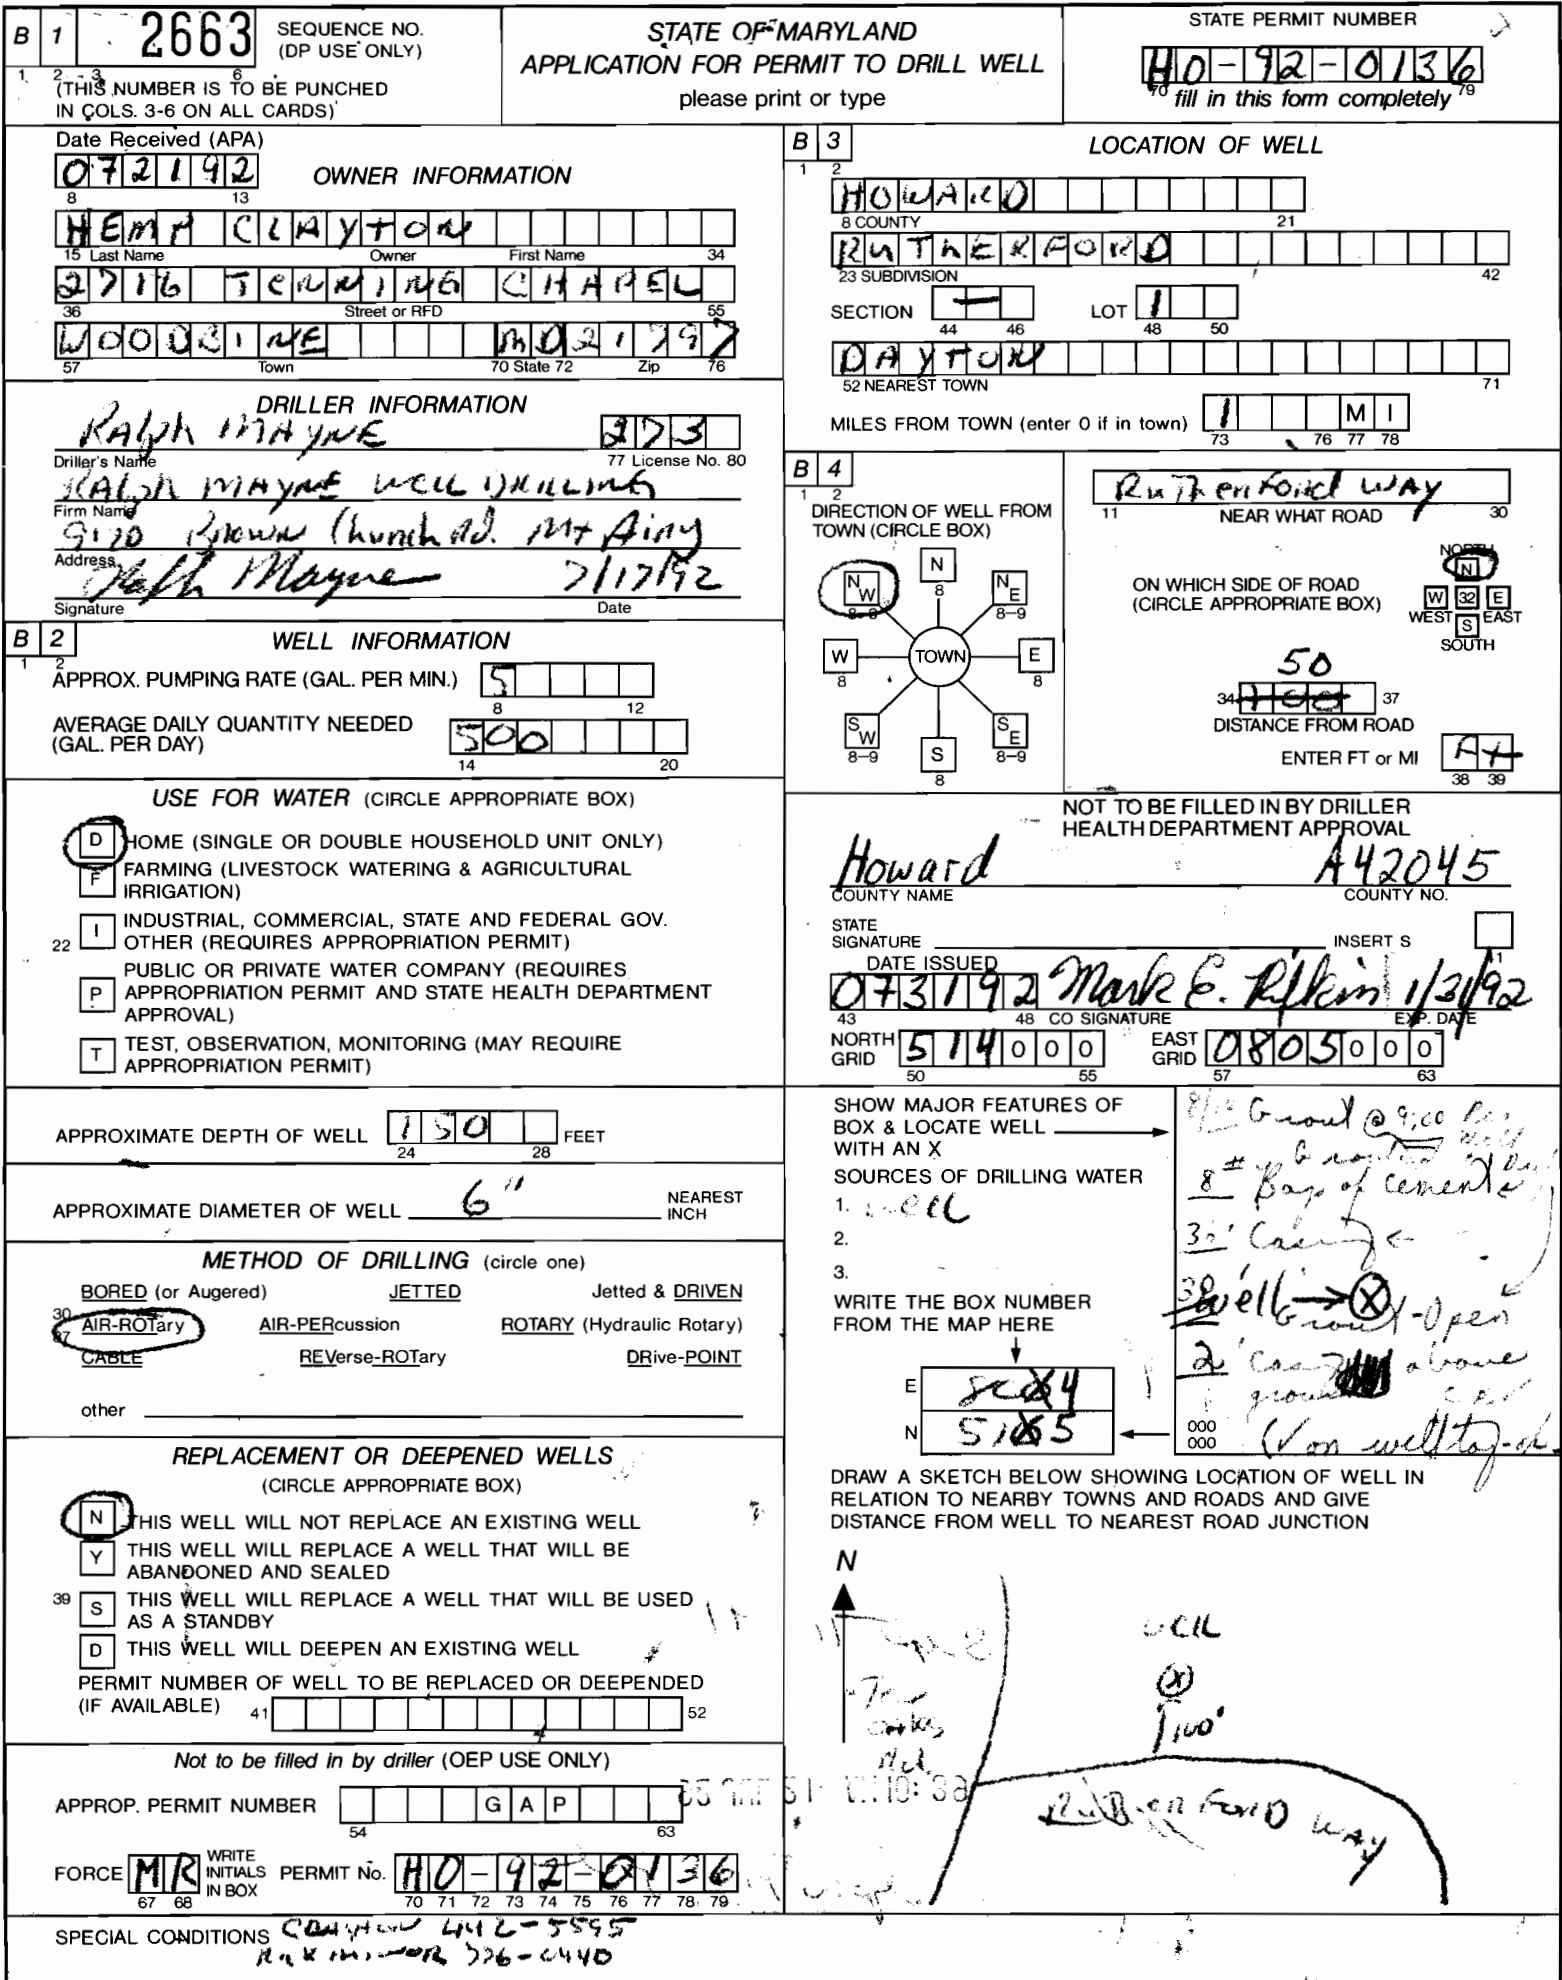 B 1 2663 SEQUENCE NO. (DP USE ONLY)
1 2 3 6
(THIS NUMBER IS TO BE PUNCHED
IN COLS. 3-6 ON ALL CARDS)
STATE OF MARYLAND
APPLICATION FOR PERMIT TO DRILL WELL
please print or type
STATE PERMIT NUMBER
HO-92-0136
70 fill in this form completely 79
Date Received (APA)
072192
8 13
OWNER INFORMATION
HEMP CLAYTON
15 Last Name Owner First Name 34
2716 CHAPEL
36 Street or RFD 55
WOODBINE MD 21797
57 Town 70 State 72 Zip 76
DRILLER INFORMATION
Ralph MAYNE 273
Driller's Name 77 License No. 80
RALPH MAYNE WELL DRILLING
Firm Name
9120 Brown Church Rd. Mt Airy
Address
Ralph Mayne 7/17/92
Signature Date
B 2 WELL INFORMATION
1 2
APPROX. PUMPING RATE (GAL. PER MIN.) 5
8 12
AVERAGE DAILY QUANTITY NEEDED
(GAL. PER DAY) 500
14 20
USE FOR WATER (CIRCLE APPROPRIATE BOX)
D HOME (SINGLE OR DOUBLE HOUSEHOLD UNIT ONLY)
F FARMING (LIVESTOCK WATERING & AGRICULTURAL
IRRIGATION)
22 I INDUSTRIAL, COMMERCIAL, STATE AND FEDERAL GOV.
OTHER (REQUIRES APPROPRIATION PERMIT)
P PUBLIC OR PRIVATE WATER COMPANY (REQUIRES
APPROPRIATION PERMIT AND STATE HEALTH DEPARTMENT
APPROVAL)
T TEST, OBSERVATION, MONITORING (MAY REQUIRE
APPROPRIATION PERMIT)
APPROXIMATE DEPTH OF WELL 150 FEET
24 28
APPROXIMATE DIAMETER OF WELL 6" NEAREST
INCH
METHOD OF DRILLING (circle one)
BORED (or Augered) JETTED Jetted & DRIVEN
30
AIR-ROTary AIR-PERcussion ROTARY (Hydraulic Rotary)
37
CABLE REVerse-ROTary DRive-POINT
other
REPLACEMENT OR DEEPENED WELLS
(CIRCLE APPROPRIATE BOX)
N THIS WELL WILL NOT REPLACE AN EXISTING WELL
Y THIS WELL WILL REPLACE A WELL THAT WILL BE
ABANDONED AND SEALED
39 S THIS WELL WILL REPLACE A WELL THAT WILL BE USED
AS A STANDBY
D THIS WELL WILL DEEPEN AN EXISTING WELL
PERMIT NUMBER OF WELL TO BE REPLACED OR DEEPENDED
(IF AVAILABLE) 41 52
Not to be filled in by driller (OEP USE ONLY)
APPROP. PERMIT NUMBER G A P
54 63
FORCE MR WRITE INITIALS IN BOX PERMIT No. HO-92-0136
67 68 70 71 72 73 74 75 76 77 78 79
SPECIAL CONDITIONS CLAYTON 442-5595
B 3 LOCATION OF WELL
1 2
HOWARD
8 COUNTY 21
RUTHERFORD
23 SUBDIVISION 42
SECTION — LOT 1
44 46 48 50
DAYTON
52 NEAREST TOWN 71
MILES FROM TOWN (enter 0 if in town) 1 M I
73 76 77 78
B 4
1 2
DIRECTION OF WELL FROM
TOWN (CIRCLE BOX)
N W N N E
8-9 8 8-9
W TOWN E
8 8
S W S S E
8-9 8 8-9
Rutherford WAY
11 NEAR WHAT ROAD 30
ON WHICH SIDE OF ROAD
(CIRCLE APPROPRIATE BOX)
NORTH
N
W 32 E
WEST EAST
S
SOUTH
50
34 100 37
DISTANCE FROM ROAD
ENTER FT or MI Ft
38 39
NOT TO BE FILLED IN BY DRILLER
HEALTH DEPARTMENT APPROVAL
Howard A42045
COUNTY NAME COUNTY NO.
STATE
SIGNATURE INSERT S
41
DATE ISSUED
073192 Mark E. Rifkin 1/31/92
43 48 CO SIGNATURE EXP. DATE
NORTH GRID 514000 EAST GRID 0805000
50 55 57 63
SHOW MAJOR FEATURES OF
BOX & LOCATE WELL
WITH AN X
SOURCES OF DRILLING WATER
1. well
2.
3.
WRITE THE BOX NUMBER
FROM THE MAP HERE
E 4
N 5
Grout @ 9:00
8# Bags of cement
Casing
Well X
Grout - Open
2' Casing above
ground
000
000
on well tag
DRAW A SKETCH BELOW SHOWING LOCATION OF WELL IN
RELATION TO NEARBY TOWNS AND ROADS AND GIVE
DISTANCE FROM WELL TO NEAREST ROAD JUNCTION
N
WELL
X
100'
RUTHERFORD WAY